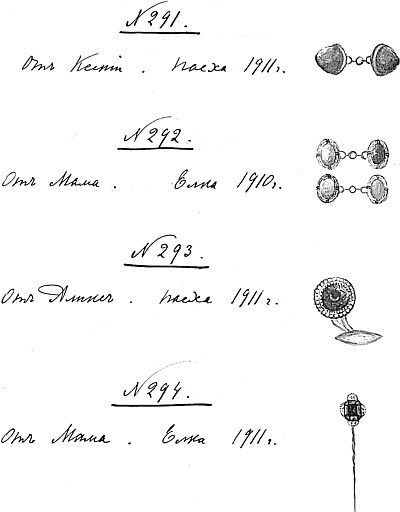 N 291.
Отъ Ксенiи. Пасха 1911 г.
N 292.
Отъ Мама. Елка 1910 г.
N 293.
Отъ Аликсъ. Пасха 1911 г.
N 294.
Отъ Мама. Елка 1911 г.